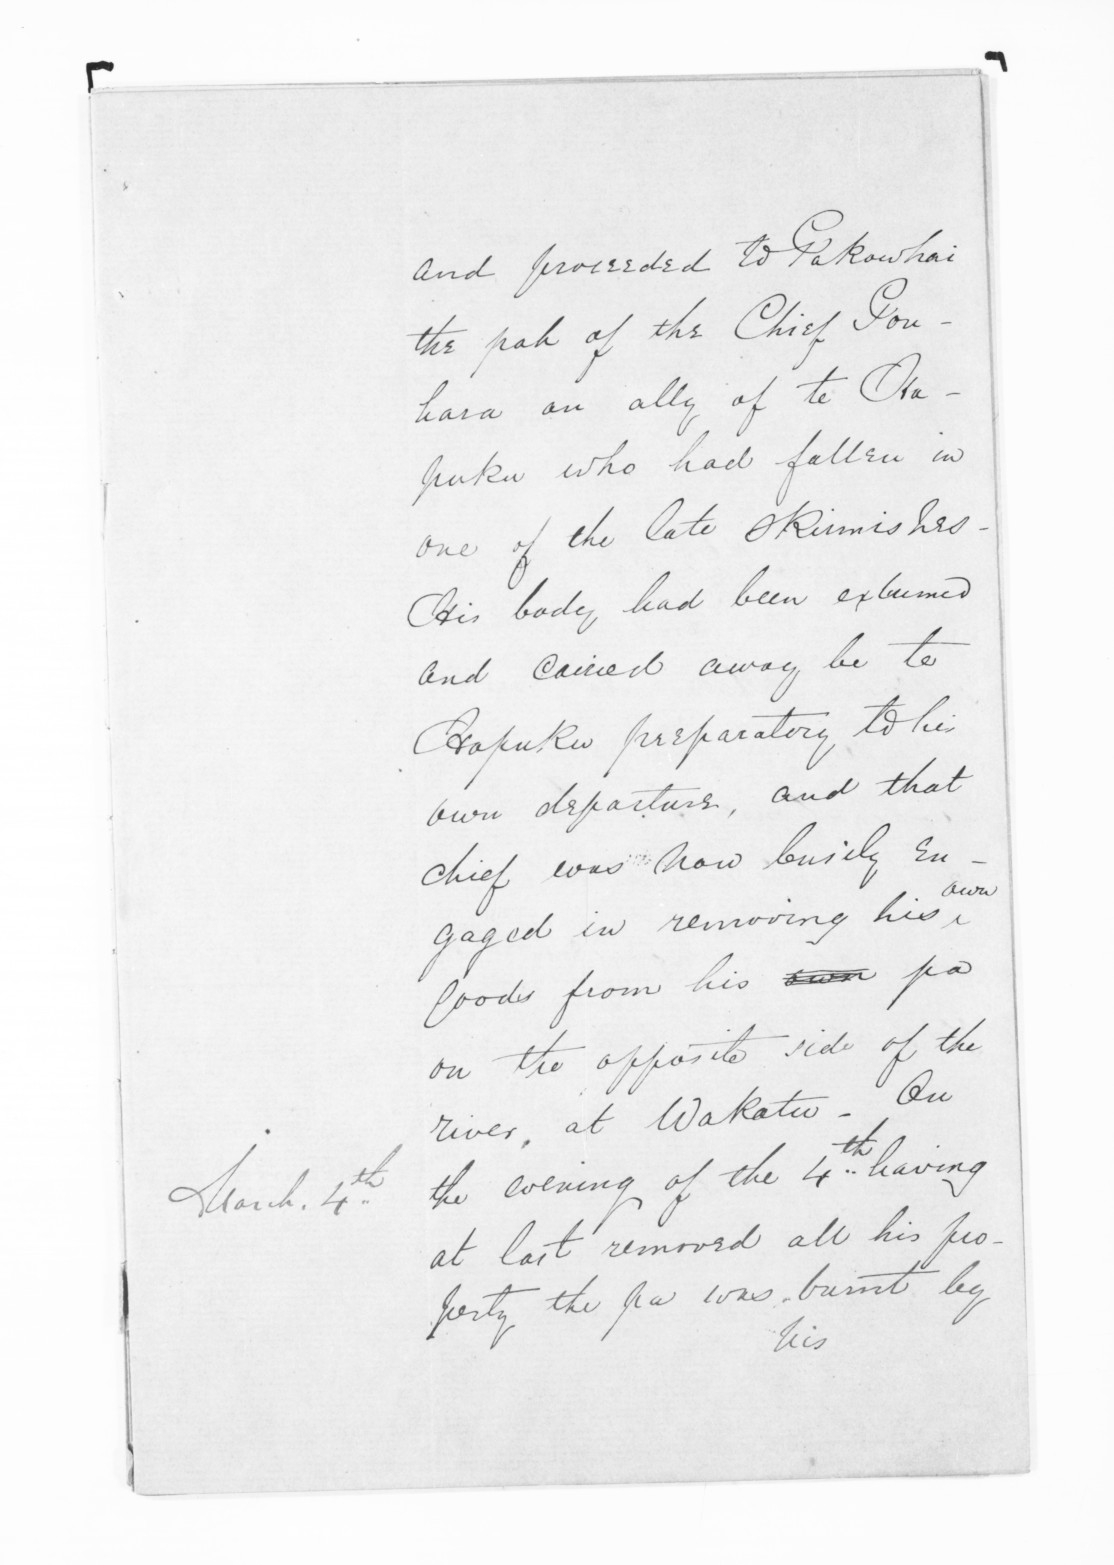 and proceeded to Pakowhai
the pah of the Chief Pou-
hara an ally of te Ha-
puku who had fallen in
one of the late skirmishes-
His body had been exhumed
and carried away be te
Hapuku preparatory to his
own departure, and that
chief was now busily en-
gaged in removing his own
goods from his own pa
on the opposite side of the
river, at Wakatu- On
March. 4th the evening of the 4th having
at last removed all his pro-
perty the pa was burnt by
his